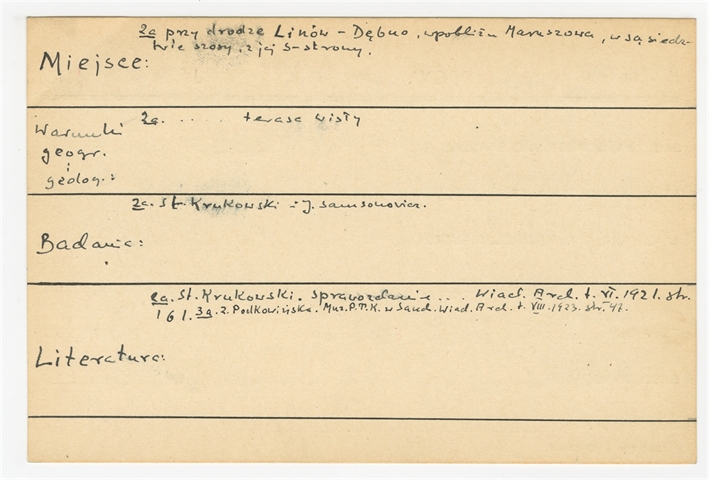 2a przy drodze Linów – Dębno, w pobliżu Maruszowa, w sąsiedz-
twie szosy, z jej S-strony.
Miejsce:
2a. . . . . . terasa Wisły
Warunki
geogr.
i
geolog.:
2a. St. Krukowski i J. Samsonowicz.
Badania:
2a. St. Krukowski. Sprawozdanie ... Wiad. Arch. t. VI. 1921. str.
161. 3a. Z. Podkowińska. Muz. P.T.K. w Sand. Wiad. Arch. t. VIII. 1923. str. 47.
Literatura: